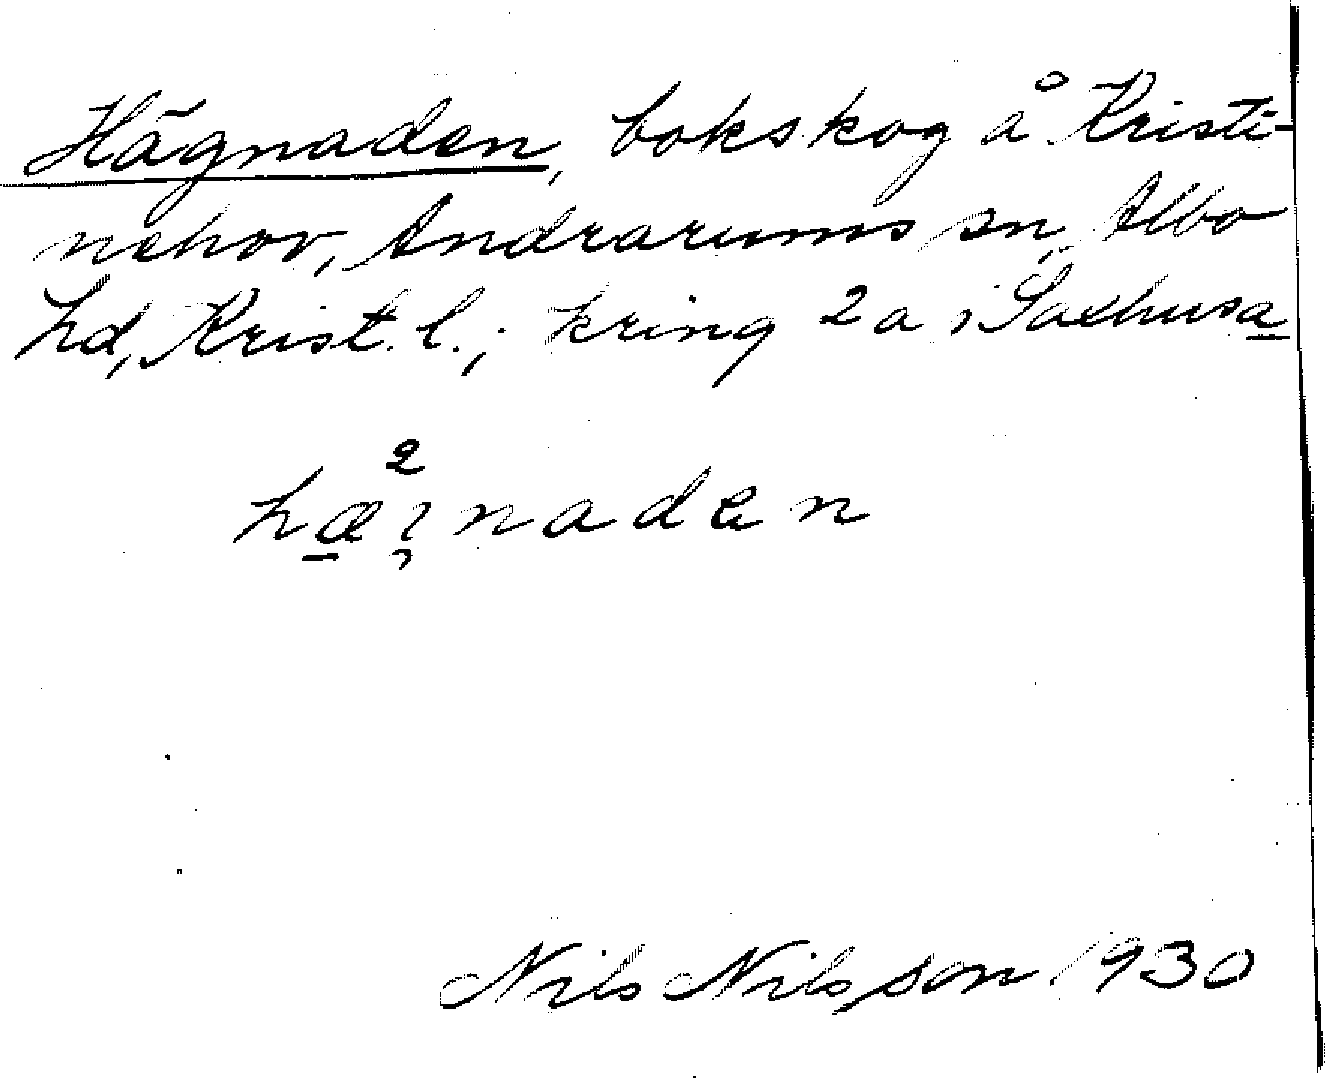 Hägnaden, bokskog å Kristi-
nehov, Andrarums sn, Albo
hd, Krist. l.; kring 2 a i Saxhusa
2
hæɿnaden
Nils Nilsson 1930